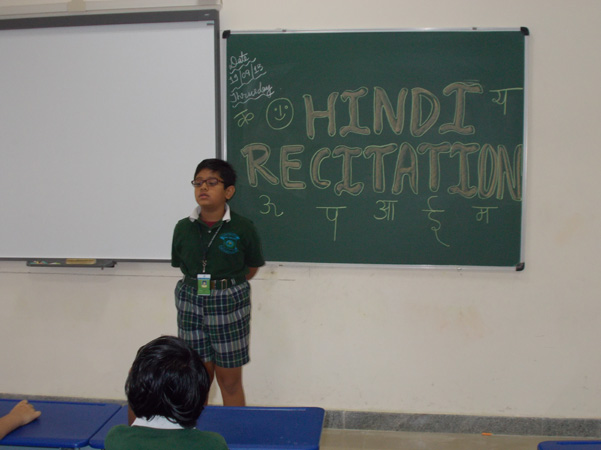 Date
19/09/13
Thursday
क HINDI य
RECITATION
ऊ प आ ई म